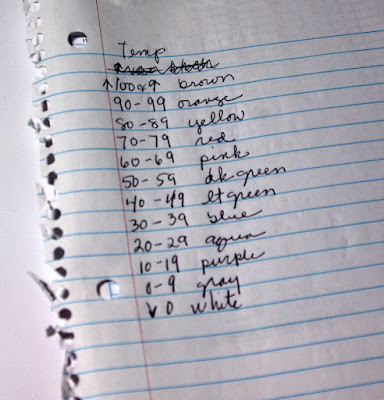 Temp
↑100&↑ brown
90-99 orange
80-89 yellow
70-79 red
60-69 pink
50-59 dk green
40-49 lt green
30-39 blue
20-29 aqua
10-19 purple
0-9 gray
↓0 white